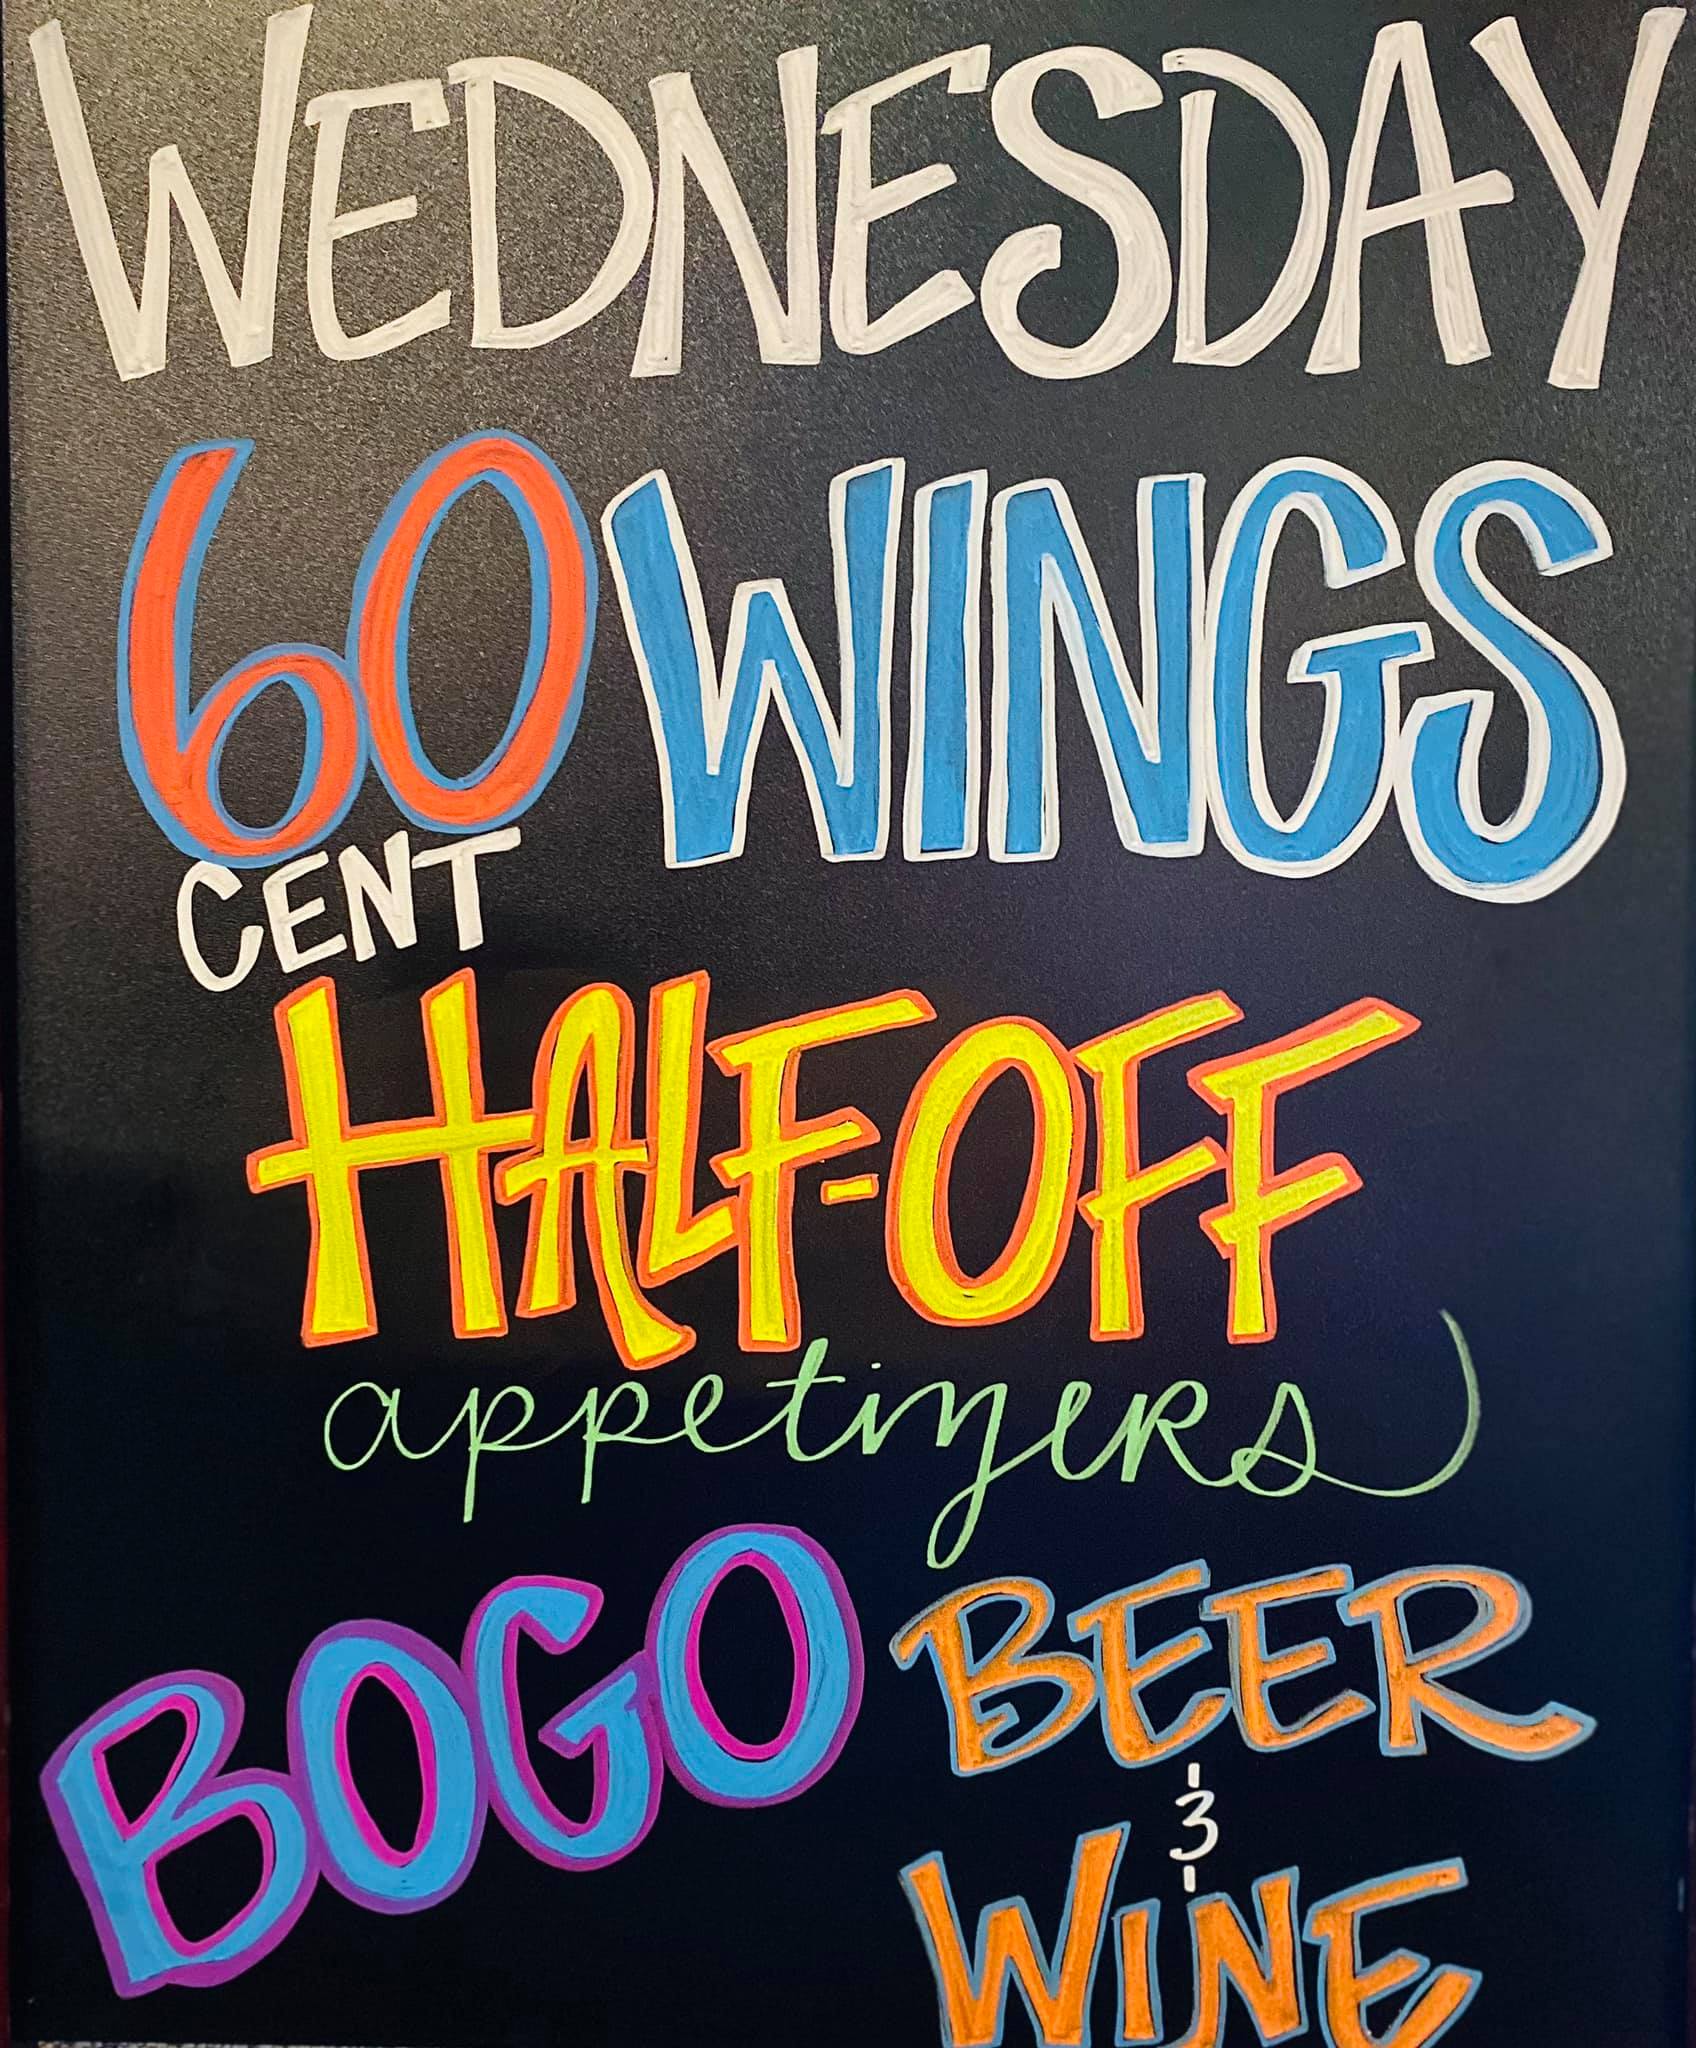 WEDNESDAY
60 WINGS
CENT
HALF-OFF
appetizers
BOGO BEER
&
WINE